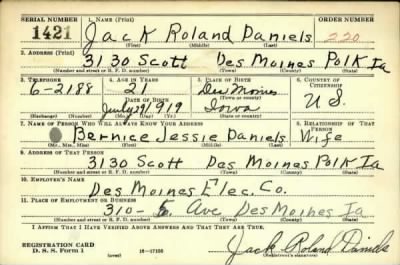 SERIAL NUMBER 1. NAME (Print) ORDER NUMBER
1421 Jack Roland Daniels 220
(First) (Middle) (Last)
2. ADDRESS (Print)
3130 Scott Des Moines Polk Ia
(Number and street or R. F. D. number) (Town) (County) (State)
3. TELEPHONE 4. AGE IN YEARS 5. PLACE OF BIRTH 6. COUNTRY OF CITIZENSHIP
6-2188 21 Des Moines
DATE OF BIRTH (Town or county) U S.
1919 Iowa
(Exchange) (Number) (Mo.) (Day) (Yr.) (State or country)
7. NAME OF PERSON WHO WILL ALWAYS KNOW YOUR ADDRESS 8. RELATIONSHIP OF THAT PERSON
Bernice Jessie Daniels Wife
(Mr., Mrs., Miss) (First) (Middle) (Last)
9. ADDRESS OF THAT PERSON
3130 Scott Des Moines Polk Ia
(Number and street or R. F. D. number) (Town) (County) (State)
10. EMPLOYER'S NAME
Des Moines Elec. Co.
11. PLACE OF EMPLOYMENT OR BUSINESS
310- 6 Ave Des Moines Ia
(Number and street or R. F. D. number) (Town) (County) (State)
I AFFIRM THAT I HAVE VERIFIED ABOVE ANSWERS AND THAT THEY ARE TRUE.
REGISTRATION CARD
D. S. S. Form 1 (over) 16-17105 Jack Roland Daniels
(Registrant's signature)